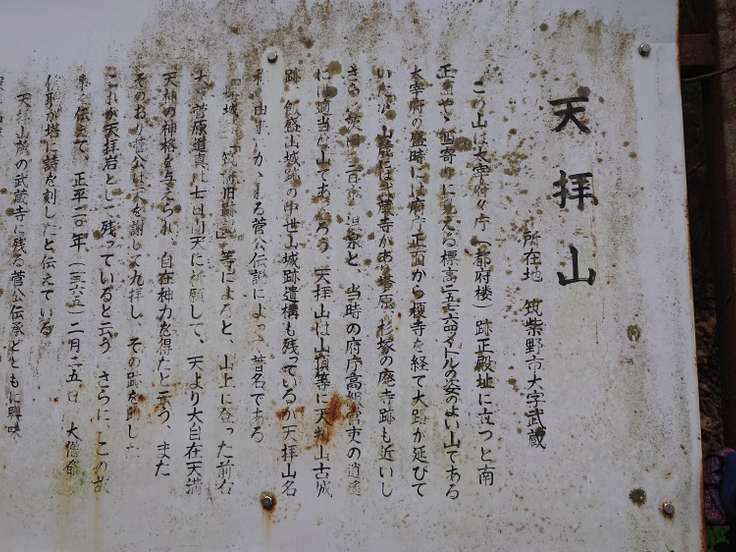 天拝山
所在地　筑紫野市大字武蔵
この山は太宰府々庁（都府楼）跡正殿址に立つと南
正面やゝ西寄りに見える標高二五七・六メートルの姿のよい山である
太宰府の盛時には府庁正面から榎寺を経て大路が延びて
いた 山麓には武蔵寺があり 塔原、杉塚の廃寺跡も近いし
次田 温泉と、当時の府庁高 の逍遥
には適当な山であ ろう。天拝山は山頂等に天判山古城
跡 飯盛山城跡の中世山城跡遺構も残っているが天拝山名
由 かゝる菅公伝説によって著名である
旧 」等によると、山上に登った前右
大 菅原道真 七日 天に祈願して、天より大自在天満
天神の神格を与えられ、自在神力を得たと云う、また
そのおり菅公は天を謝して九拝し その跡を印した
これが天拝岩として残っていると云う さらに、この故
事を伝えて、正平二〇年、（一三六五）二月二五日 大僧
が塔に詩を刻したと伝えている。
天拝山麓の武蔵寺に残る菅公伝承とともに興味